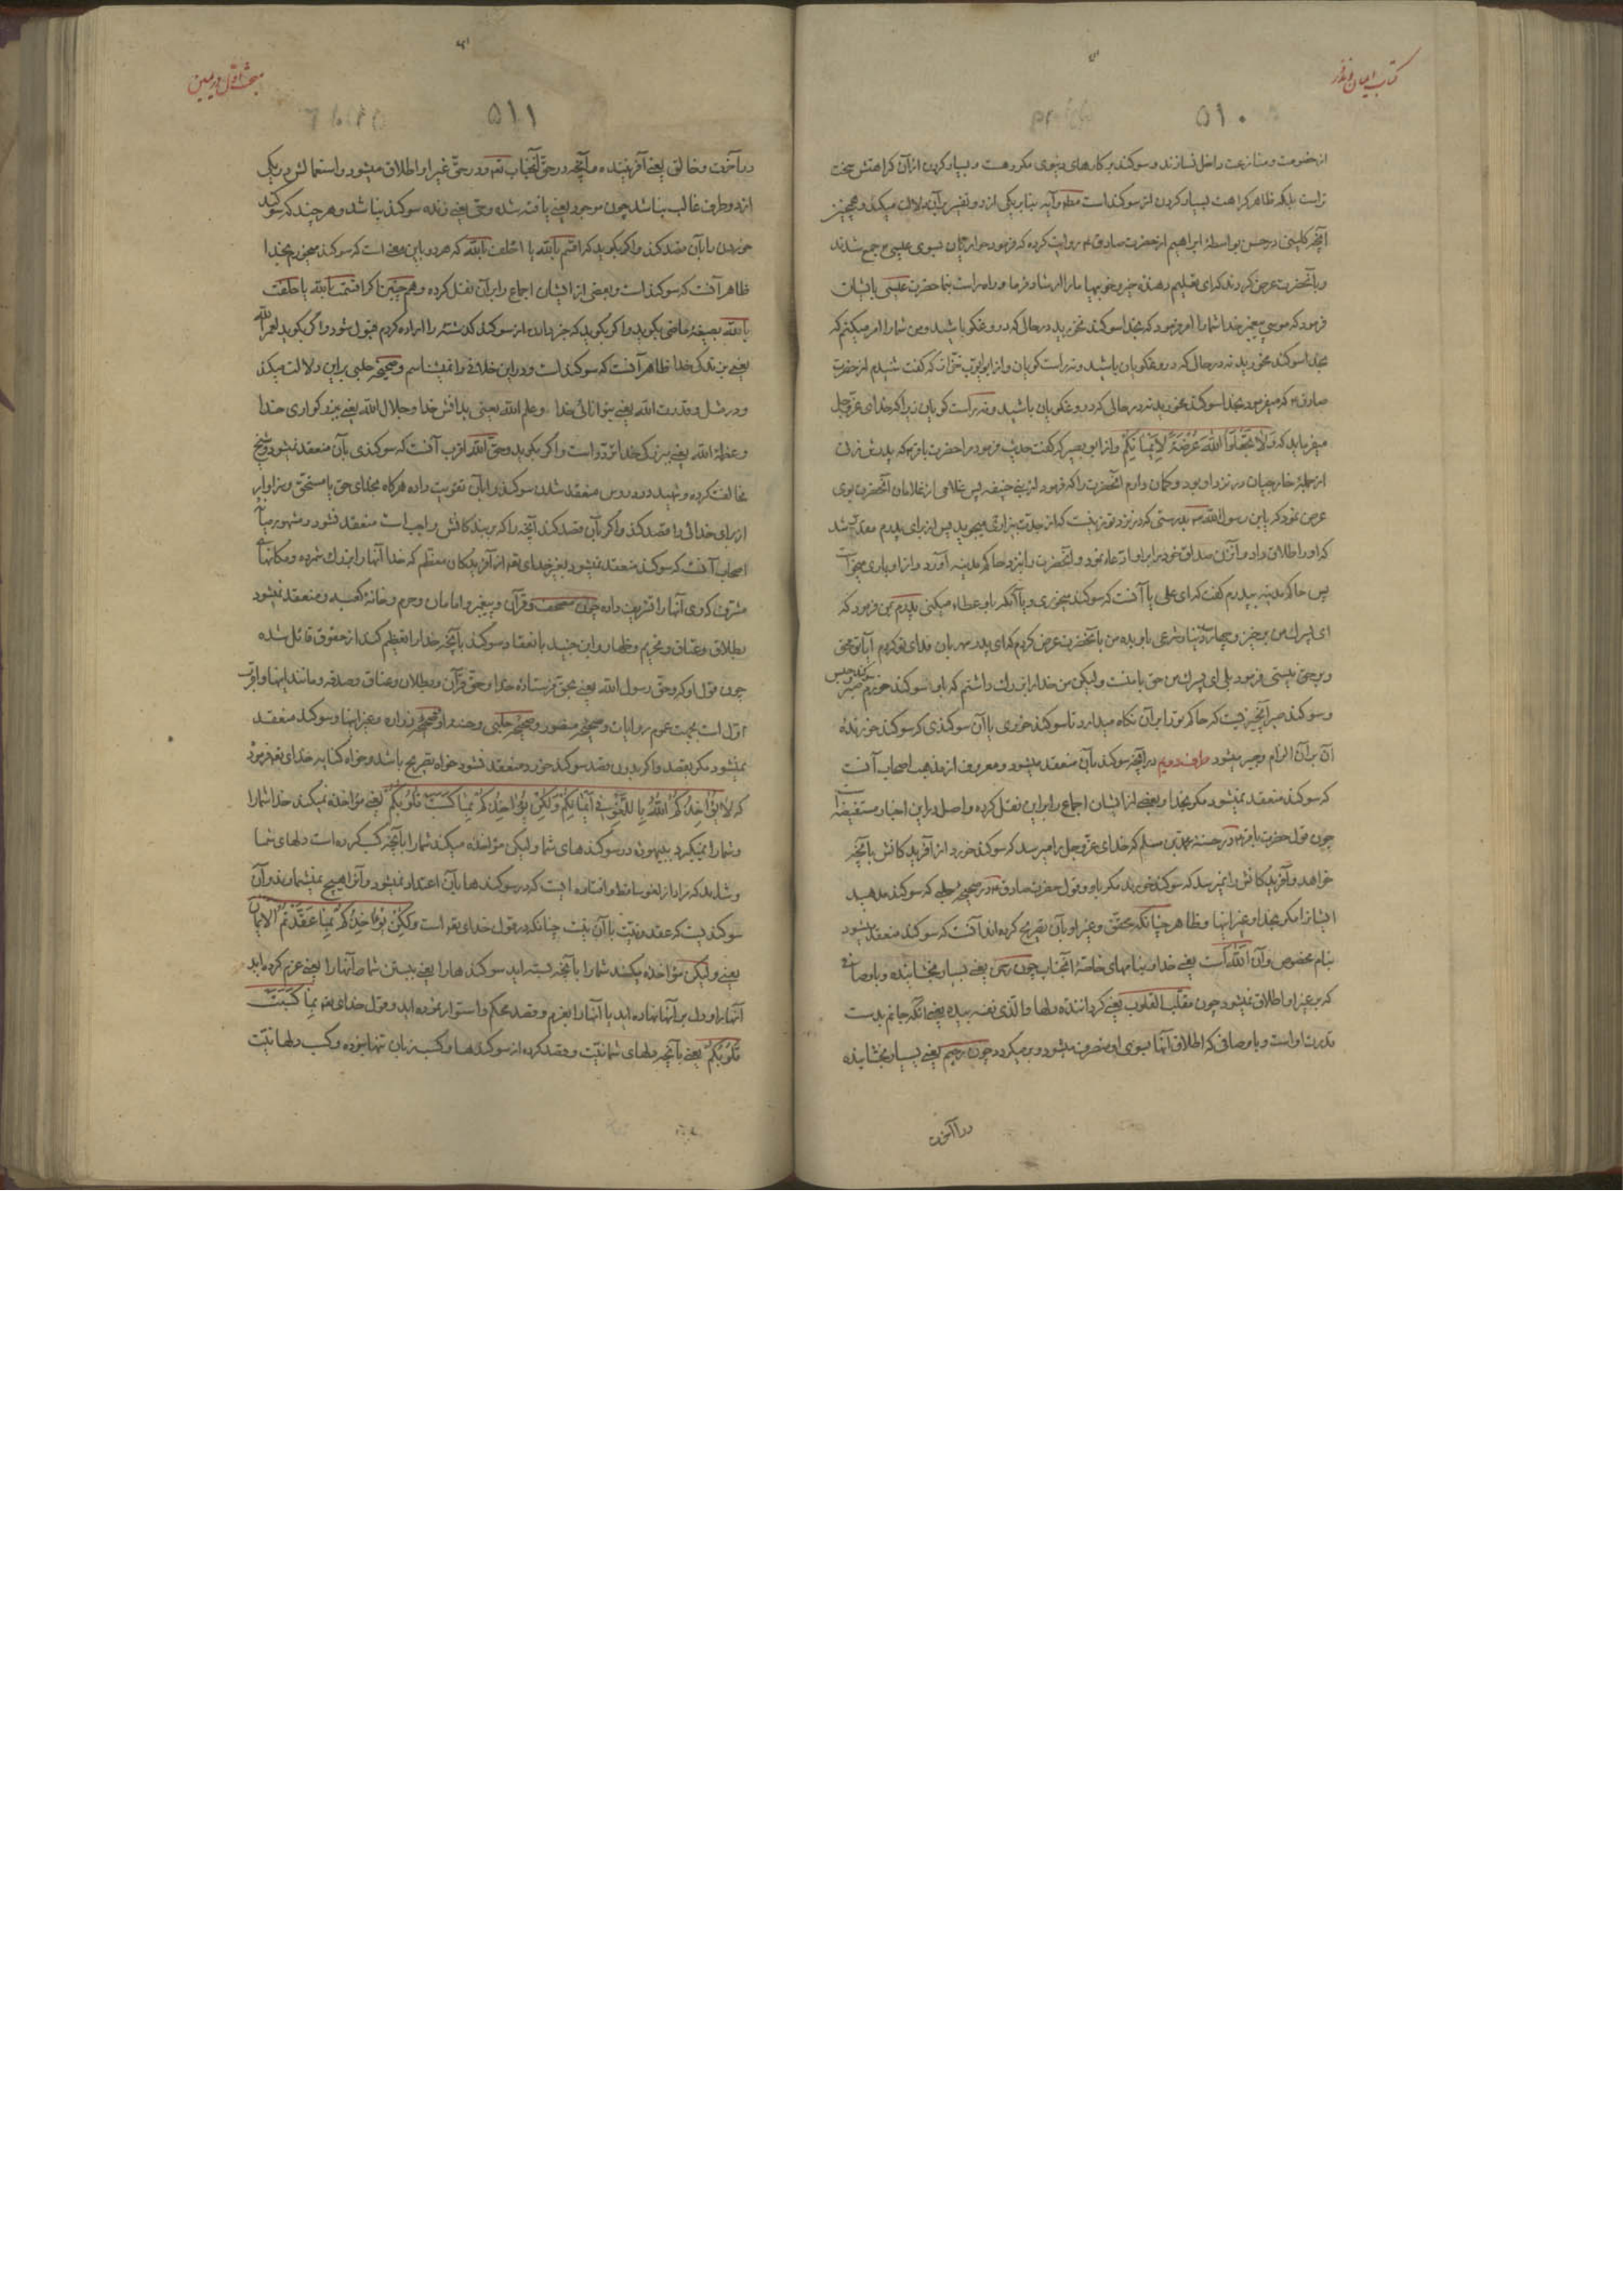 کتاب ایمان و نذر
۵۱۰
از خصومت و منازعت داخل نسازند و سوکند بر کارهای دنیوی مکروهست و بسیار کردن از آن کراهتش سخت
تر است بلکه ظاهر کراهت بسیار کردن از سوکند است مط و آیه بنا بر یکی از دو تفسیر بر آن دلالت میکند و همچنین
آنچه کلینی در حسن بواسطۀ ابراهیم از حضرت صادق ع روایت کرده که فرمود حواریان بسوی عیسی ع جمع شدند
و بآنحضرت عرض کردند که ای تعلیم دهندۀ خیر و خوبیها ما را ارشاد فرما و راه راست بنما حضرت عیسی بایشان
فرمود که موسی پیغمبر خدا شما را امر فرمود که بخدا سوکند نخورید در حالی که دروغکو باشید و من شما را امر میکنم که
بخدا سوکند مخورید نه در حالی که دروغکویان باشید و نه راست کویان و از ابو ایوب خزاز که کفت شنیدم از حضرت
صادق ع که میفرمود بخدا سوکند مخورید نه در حالی که دروغکویان باشید و نه راست کویان زیرا که خدای عز و جل
میفرماید که وَلَا تَجْعَلُوا اللّٰهَ عُرْضَةً لِأَيْمَانِكُمْ و از ابو بصیر که کفت حدیث فرمود مرا حضرت باقر ع که پدرش زنی
از جملۀ خارجیان در نزد او بود و کمان دارم آنحضرت را که فرمود از بنی حنیفه پس غلامی از غلامان آنحضرت بوی
عرض نمود که یابن رسول الله ص بدرستی که در نزد تو زنیست که از جدت بیزاری میجوید پس از برای پدرم مقدر شد
که او را طلاق داد و آن زن صداق خود را بر او ادعاء نمود و آنحضرت را بنزد حاکم مدینه آورد و از او یاری میخواست
پس حاکم مدینه بپدرم کفت که ای علی یا آنست که سوکند میخوری و یا آنکه باو عطاء میکنی پدرم بمن فرمود که
ای پسرک من برخیز و چهارصد دینار شرعی باو بده من بآنحضرت عرض کردم که ای پدر مهربان فدای تو کردم آیا تو محق
و بر حق نیستی فرمود بلی ای پسرک من حق با منست ولیکن من خدا را بزرک داشتم که باو سوکند خورم
و سوکند صبر آنچیزیست که حاکم تو را بر آن نکاه میدارد تا سوکند خوری یا آن سوکندی که سوکند خورنده
آن بر آن الزام و جبر میشود طرف دویم در آنچه سوکند بآن منعقد میشود و معروف از مذهب اصحاب آنست
که سوکند منعقد نمیشود مکر بخدا و بعضی از ایشان اجماع را بر این نقل کرده و اصل در این اخبار مستفیضه است
چون قول حضرت باقر ع در حسنۀ محمد بن مسلم که خدای عز و جل را میرسد که سوکند خورد از آفریدکانش بآنچه
خواهد و آفریدکانش را نمیرسد که سوکند خورند مکر باو و قول حضرت صادق ع در صحیحۀ حلبی که سوکند مدهید
ایشان را مکر بخدا و غیر اینها و ظاهر چنانکه محقق و غیر او بآن تصریح کرده اند آنست که سوکند منعقد میشود
بنام مخصوص و آن اللّٰه است یعنی خدا و بنامهای خاصۀ آنجناب چون رحمن یعنی بسیار بخشاینده و باوصافی
که بر غیر او اطلاق نمیشود چون مقلب القلوب یعنی کردانندۀ دلها و الذی نفسی بیده یعنی آنکه جانم بدست
قدرت اوست و باوصافی که اطلاق آنها بسوی او منصرف میشود و برمیکردد چون رحیم یعنی بسیار بخشاینده
مبحث اول در یمین
۵۱۱
در آخرت و خالق یعنی آفریننده و آنچه در حق آنجناب تعه و در حق غیر او اطلاق میشود و استعمالش در یکی
از دو طرف غالب نباشد چون موجود یعنی یافته شده و حی یعنی زنده سوکند نباشد و هر چند که سوکند
خوردن را بآن قصد کند و اکر بکوید که اقسم باللّٰه یا احلف باللّٰه که هر دو باین معنی است که سوکند میخورم بخدا
ظاهر آنست که سوکند است و بعضی از ایشان اجماع را بر آن نقل کرده و هم چنین اکر اقسمت باللّٰه یا حلفت
باللّٰه بصیغۀ ماضی بکوید و اکر بکوید که خبر دادن از سوکند کذشته را اراده کردم قبول شود و اکر بکوید لعمر اللّٰه
یعنی بزندکی خدا ظاهر آنست که سوکند است و در این خلافی را نمیشناسم و صحیحۀ حلبی بر این دلالت میکند
و در مثل و قدرت اللّٰه یعنی بتوانائی خدا و علم اللّٰه یعنی بدانش خدا و جلال اللّٰه یعنی ببزرکواری خدا
و عظمة اللّٰه یعنی ببزرکی خدا تردد است و اکر بکوید و حق اللّٰه اقرب آنست که سوکندی بآن منعقد نشود و شیخ
مخالفت کرده و شهید در دروس منعقد شدن سوکند را بآن تقویت داده هرکاه بخدای حق یا مستحق و سزاوار
از برای خدائی را قصد کند و اکر بآن قصد کند آنچه را که بر بندکانش واجب است منعقد نشود و مشهور میان
اصحاب آنست که سوکند منعقد نمیشود بغیر خدای تعه از آفریدکان معظم که خدا آنها را بزرک شمرده و مکانهای
مشرف که وی آنها را تشریف داده چون مصحف و قرآن و پیغمبر و امامان و حرم و خانۀ کعبه و منعقد نمیشود
بطلاق و عتاق و تحریم و ظهار و ابن جنید بانعقاد سوکند بآنچه خدا را تعظیم کند از حقوق قائل شده
چون قول او که و حق رسول اللّٰه یعنی بحق فرستادۀ خدا و حق قرآن و بطلاق و عتاق و صدقه و مانند اینها و اقرب
اول است بجهت عموم روایات و صحیحۀ منصور و صحیحۀ حلبی و حسنه او و صحیحۀ زراره و غیر اینها و سوکند منعقد
نمیشود مکر بقصد و اکر بدون قصد سوکند خورد منعقد نشود خواه بتصریح باشد و خواه کنایه خدای تعه فرمود
که لَا يُؤَاخِذُكُمُ اللّٰهُ بِاللَّغْوِ فِي أَيْمَانِكُمْ وَلَكِنْ يُؤَاخِذُكُمْ بِمَا كَسَبَتْ قُلُوبُكُمْ یعنی مؤاخذه نمیکند خدا شما را
و شما را نمیکیرد ببیهوده در سوکندهای شما ولیکن مؤاخذه میکند شما را بآنچه کسب کرده است دلهای شما
و شاید که مراد از لغو ساقط و افتاده ایست که در سوکندها بآن اعتداد نمیشود و آنرا هیچ نمیشمارند و آن
سوکندیست که عقد و نیت با آن نیست چنانکه در قول خدای تعه است وَلَكِنْ يُؤَاخِذُكُمْ بِمَا عَقَّدْتُمُ الْأَيْمَانَ
یعنی ولیکن مؤاخذه میکند شما را بآنچه بسته اید سوکندها را یعنی ببستن شما آنها را یعنی عزم کرده اید
آنها را و دل بر آنها نهاده اید یا آنها را بعزم و قصد محکم و استوار نموده اید و قول خدای تعه بِمَا كَسَبَتْ
قُلُوبُكُمْ یعنی بآنچه دلهای شما نیت و قصد کرده از سوکندها و کسب زبان تنها نبوده و کسب دلها نیت